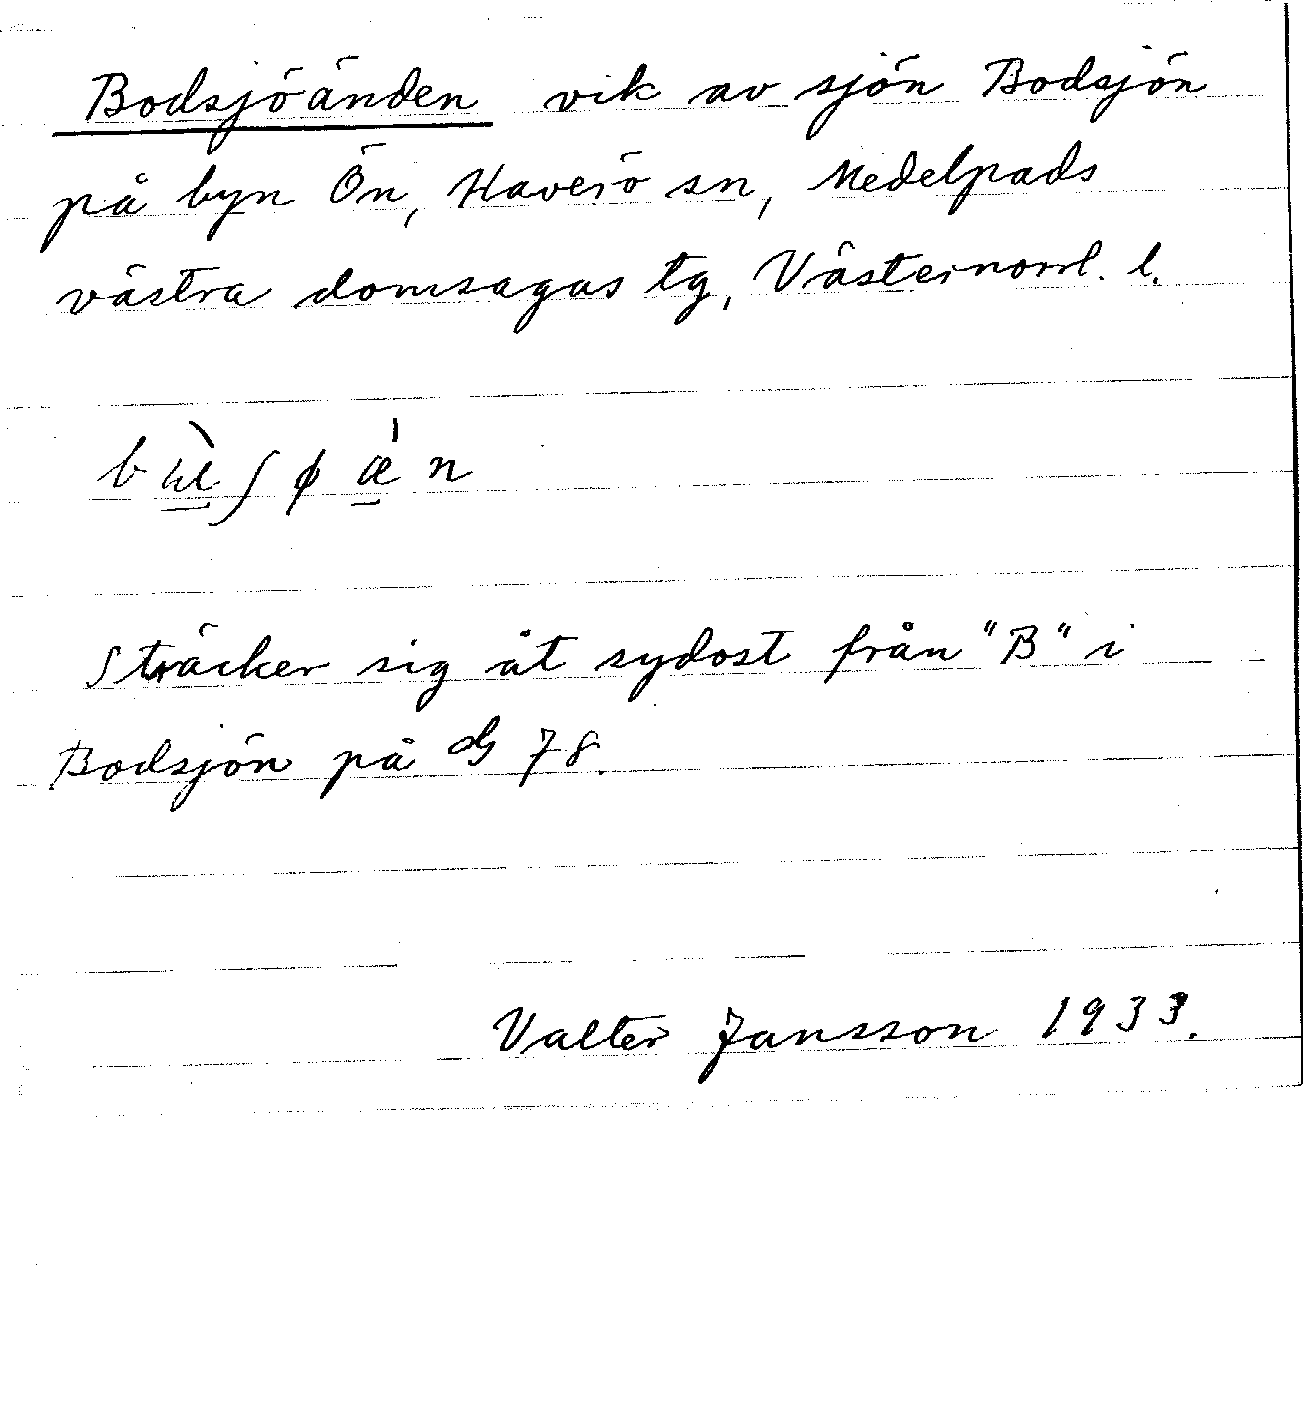 Bodsjöänden vik av sjön Bodsjön
på byn Ön, Haverö sn, Medelpads
västra domsagas tg, Västernorrl. l.
Sträcker sig åt sydost från "B" i
Bodsjön på 78.
Valter Jansson 1933.